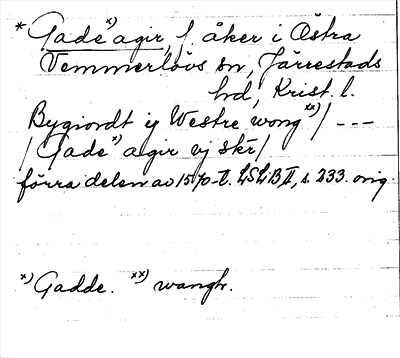 * Gade x) agir, f åker i Östra
Vemmerlövs sn, Järrestads
hd, Krist. l.
Bygiordt ij Westre wong xx) / ---
/ Gade x) agir vj skr /
förra delen av 1570-t. LSLB II, s. 233. orig.
x) Gadde. xx) wangh.